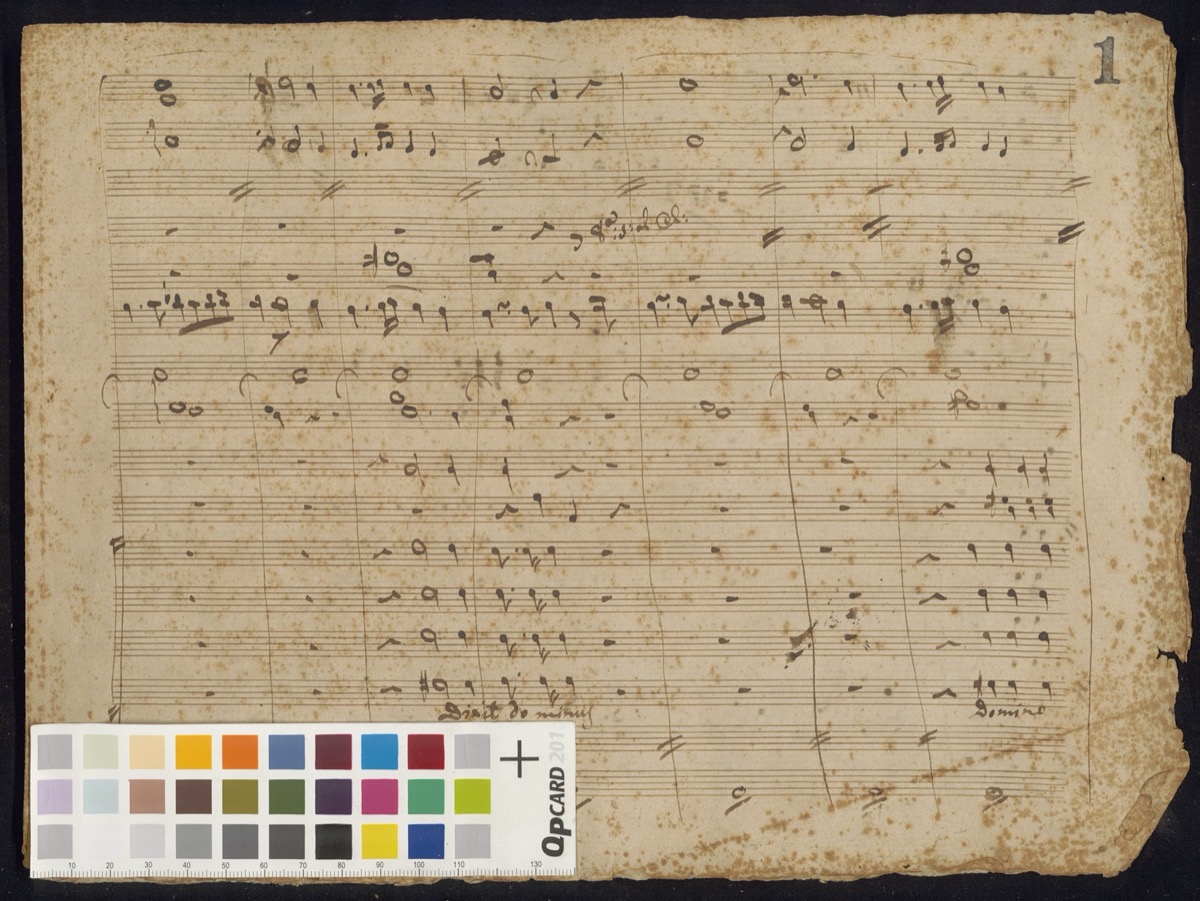 1
Dixit do minus
Domino
QPCARD 201
10 20 30 40 50 60 70 80 90 100 110 130